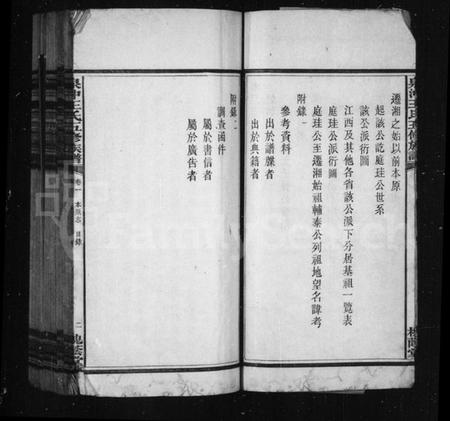 遷湘之始以前本原
起該公訖庭珪公世系
該公派衍圖
江西及其他各省該公派下分居基祖一覽表
庭珪公派衍圖
庭珪公至遷湘始祖輔泰公列祖地望名諱考
附錄一
參考資料
出於譜牒者
出於典籍者
附錄二
調查函件
屬於書信者
屬於廣告者
王氏五修族譜
卷一
本原志
目錄
二